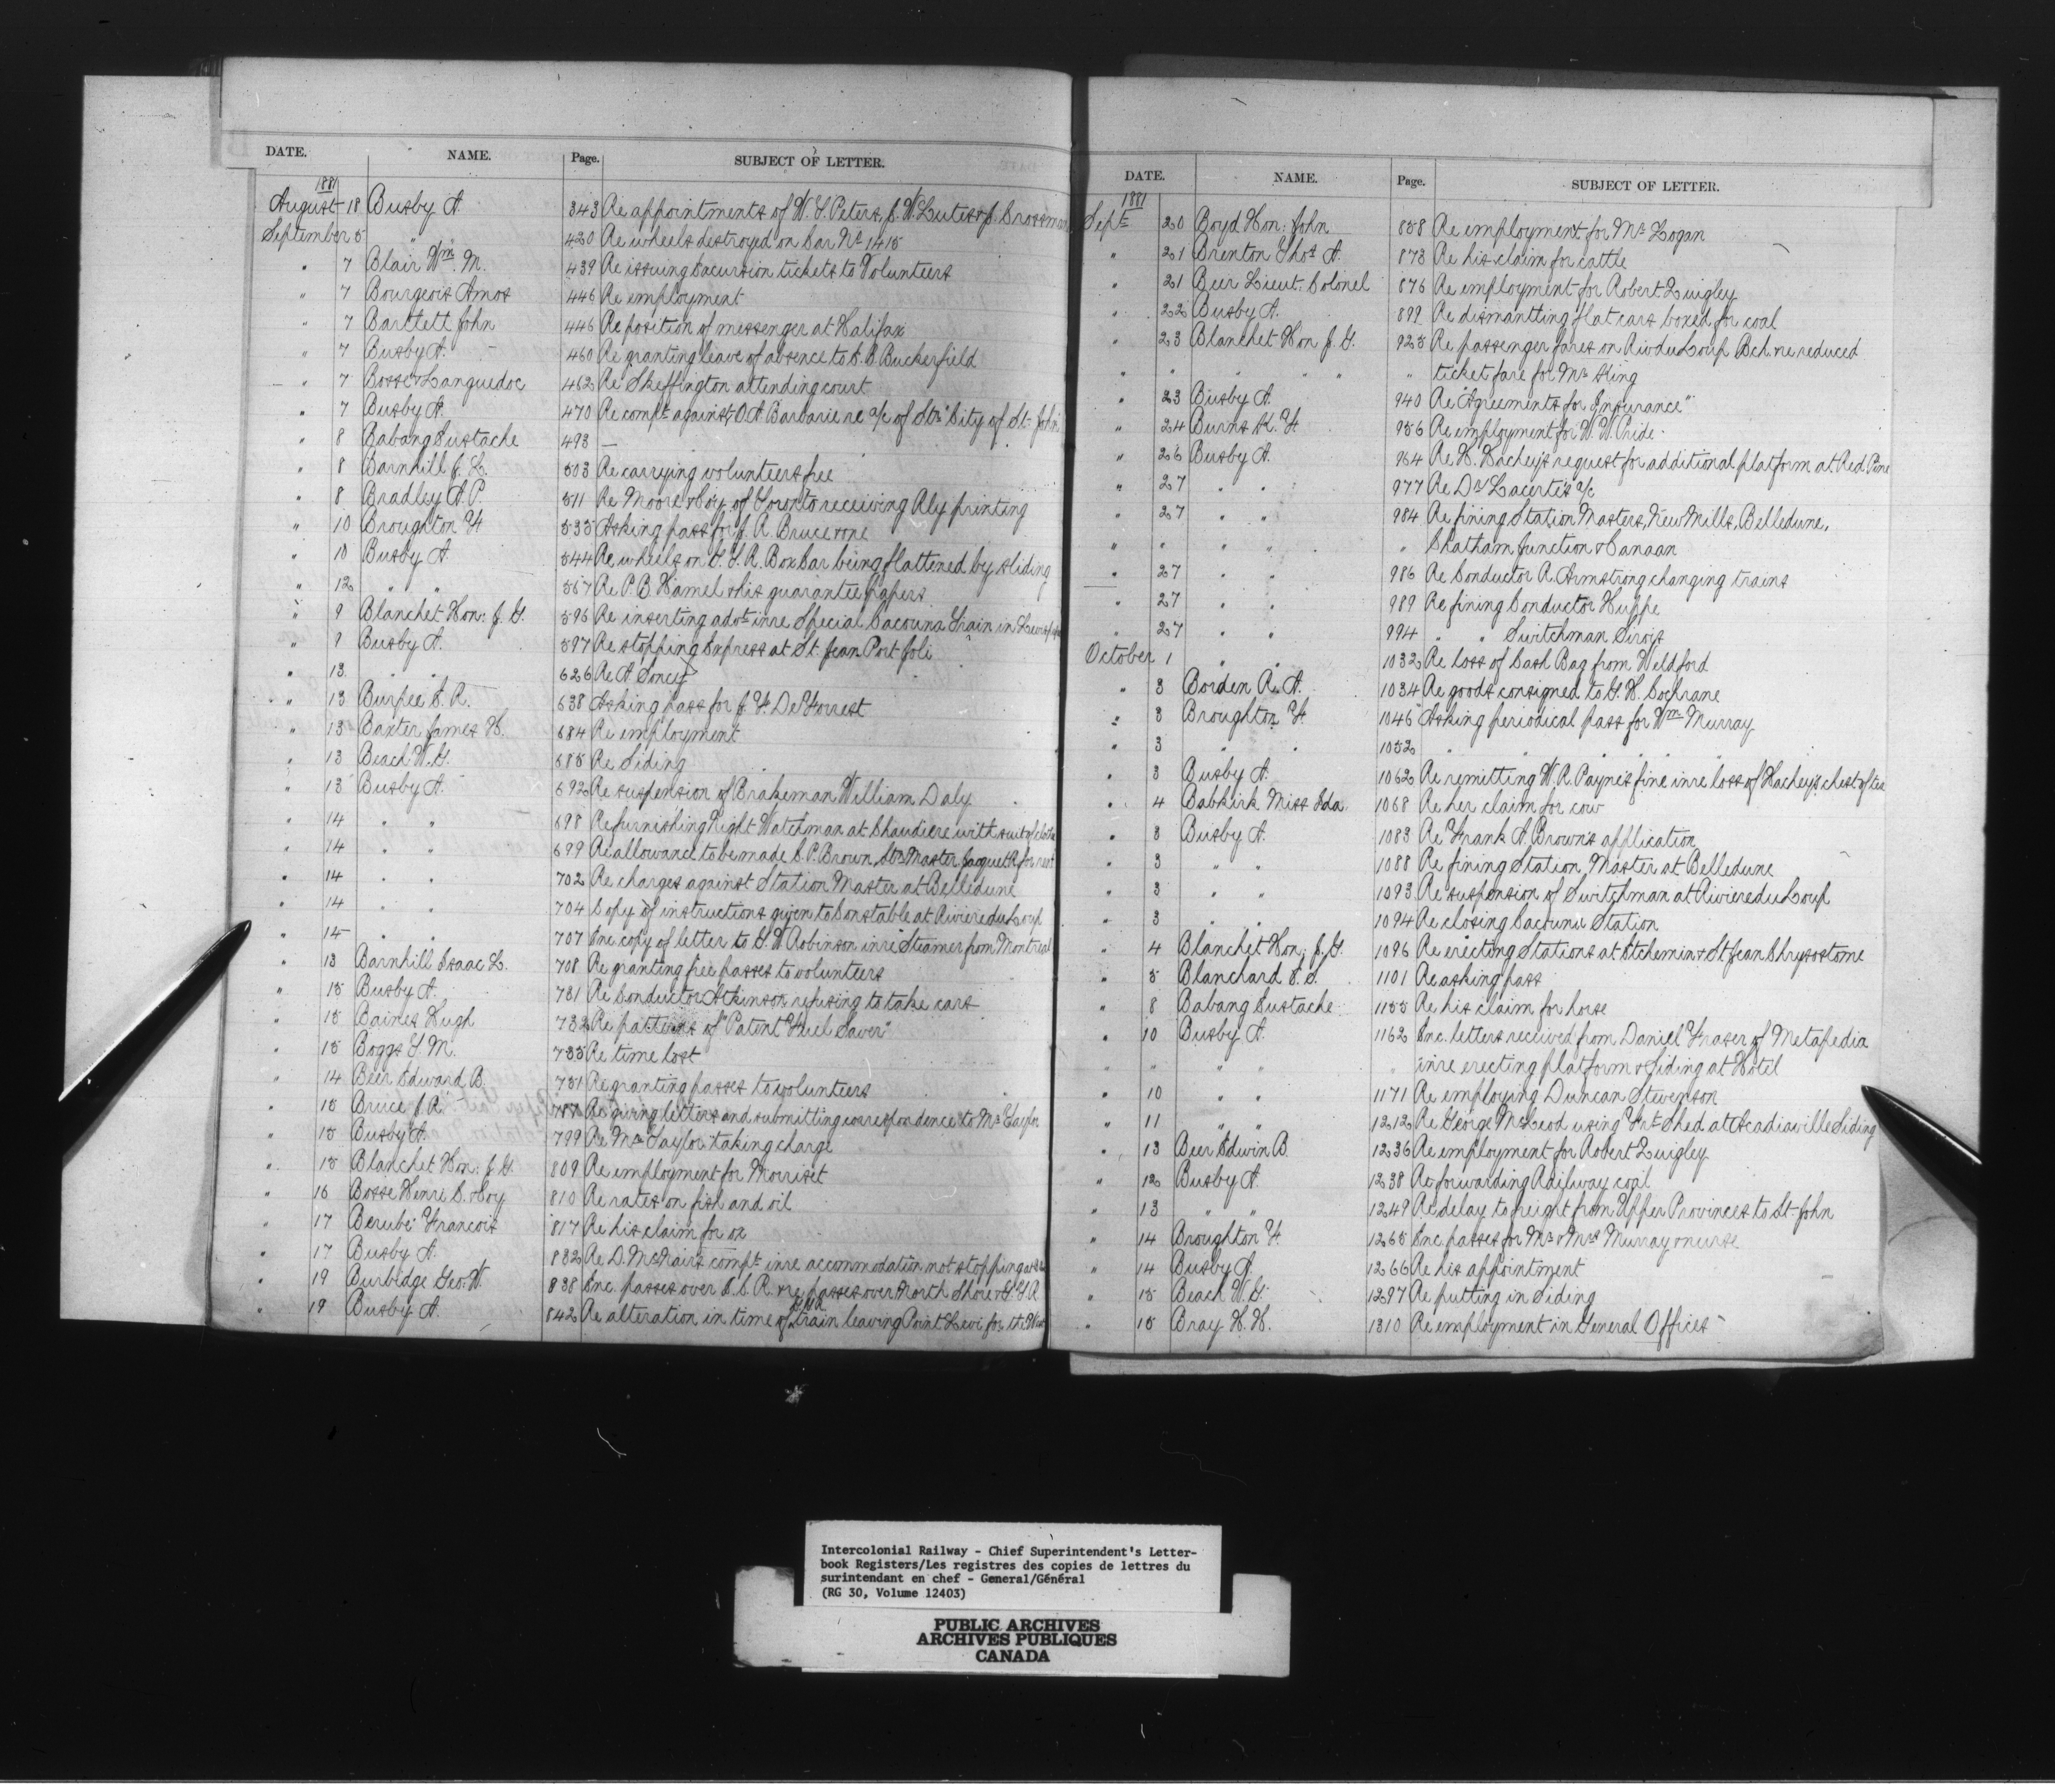 DATE. NAME. Page. SUBJECT OF LETTER.
1881
August 18 Busby A. 343 Re appointments of W. Y. Peters, J. W. Lutes & J. Crossman
September 5 " " 420 Re wheels destroyed on Car No 1415
" 7 Blair Wm. M. 439 Re issuing Excursion tickets to Volunteers
" 7 Bourgeois Amos 446 Re employment
" 7 Bartlett John 446 Re position of messenger at Halifax
" 7 Busby A. 460 Re granting leave of absence to C. B. Buckerfield
" 7 Bosse & Languedoc 462 Re Skeffington attending court
" 7 Busby A. 470 Re compt against O. A. Barbarie re a/c of Str "City of St. John
" 8 Babang Eustache 493 —
" 8 Barnhill J. L. 503 Re carrying volunteers free
" 8 Bradley A. P. 511 Re Moore & Coy. of Toronto receiving Rly printing
" 10 Broughton F. 535 Asking pass for J. R. Bruce & one
" 10 Busby A. 544 Re wheels on G. T. R. Box Car being flattened by sliding
" 12 " " 557 Re P. B. Hamel & his guarantee papers
" 9 Blanchet Hon: J. G. 596 Re inserting advt in re Special Cacouna Train in
" 9 Busby A. 597 Re stopping Express at St. Jean Port Joli
" 13 " " 626 Re A Soncy
" 13 Burpee E. R. 638 Asking pass for J. F. De Forrest
" 13 Baxter James H. 684 Re employment
" 13 Beach W. G. 685 Re Siding
" 13 Busby A. 692 Re suspension of Brakeman William Daly
" 14 " " 698 Re furnishing Night Watchman at Chaudiere with suit of clothes
" 14 " " 699 Re allowance to be made C. P. Brown, Stn Master Jacquet R. for rent
" 14 " " 702 Re charges against Station Master at Belledune
" 14 " " 704 Copy of instructions given to Constable at Riviere du Loup
" 14 " " 707 Enc copy of letter to G. W. Robinson in re Steamer from Montreal
" 13 Barnhill Isaac L. 708 Re granting free passes to volunteers
" 15 Busby A. 731 Re Conductor Atkinson refusing to take cars
" 15 Baines Hugh 732 Re patterns of "Patent Fuel Saver"
" 15 Boggs T. M. 735 Re time lost
" 14 Beer Edward B. 751 Re granting passes to volunteers
" 15 Bruce J. R. 787 Re giving letters and submitting correspondence to Mr Taylor
" 15 Busby A. 799 Re Mr Taylor taking charge
" 15 Blanchet Hon: J. G. 809 Re employment for Morriset
" 16 Bosse Henri C. & Coy 810 Re rates on fish and oil
" 17 Berube Francois 817 Re his claim for ox
" 17 Busby A. 832 Re D. McNair's compt in re accommodation not stopping
" 19 Burbidge Geo. W. 838 Enc. passes over I. C. R. & re passes over North Shore & G. T. R
" 19 Busby A. 842 Re alteration in time of train leaving Point Levi for the West
DATE. NAME. Page. SUBJECT OF LETTER.
1881
Sept 20 Boyd Hon: John 858 Re employment for Mr Logan
" 21 Brenton Thos A. 873 Re his claim for cattle
" 21 Beer Lieut. Colonel 876 Re employment for Robert Quigley
" 22 Busby A. 899 Re dismantling flat cars boxed for coal
" 23 Blanchet Hon J. G. 925 Re passenger fares on Riv du Loup Bch & re reduced
" " " " " " ticket fare for Mr King
" 23 Busby A. 940 Re "Agreements for Insurance"
" 24 Burns K. F. 956 Re employment for W. W. Pride
" 26 Busby A. 964 Re H. Hachey's request for additional platform at Red Pine
" 27 " " 977 Re Dr Lacerte's a/c
" 27 " " 984 Re fining Station Masters, New Mills, Belledune,
" " " " " Chatham Junction & Canaan
" 27 " " 986 Re Conductor R. Armstrong changing trains
" 27 " " 989 Re fining Conductor Huppe
" 27 " " 994 " " Switchman Sirois
October 1 " " 1032 Re loss of Cash Bag from Weldford
" 3 Borden R. A. 1034 Re goods consigned to G. H. Cochrane
" 3 Broughton F. 1045 Asking periodical pass for Wm Murray
" 3 " " 1052 " " " " "
" 3 Busby A. 1062 Re remitting W. R. Payne's fine in re loss of Hachey's chest of tea
" 4 Babkirk Miss Ida 1068 Re her claim for cow
" 3 Busby A. 1083 Re Frank A. Brown's application
" 3 " " 1088 Re fining Station Master at Belledune
" 3 " " 1093 Re suspension of Switchman at Riviere du Loup
" 3 " " 1094 Re closing Cacouna Station
" 4 Blanchet Hon; J. G. 1096 Re erecting Stations at Etchemin & St Jean Chrysostome
" 5 Blanchard T. S. 1101 Re asking pass
" 8 Babang Eustache 1155 Re his claim for horse
" 10 Busby A. 1162 Enc. letters received from Daniel Fraser of Metapedia
" " " " " in re erecting platform & Siding at Hotel
" 10 " " 1171 Re employing Duncan Stevenson
" 11 " " 1212 Re George McLeod using Frt Shed at Acadiaville Siding
" 13 Beer Edwin B. 1236 Re employment for Robert Quigley
" 12 Busby A. 1238 Re forwarding Railway coal
" 13 " " 1249 Re delay to freight from Upper Provinces to St John
" 14 Broughton F 1265 Enc passes for Mr & Mrs Murray & nurse
" 14 Busby A. 1266 Re his appointment
" 15 Beach W. G. 1297 Re putting in Siding
" 15 Bray H. H. 1310 Re employment in General Offices
Intercolonial Railway - Chief Superintendent's Letter-
book Registers/Les registres des copies de lettres du
surintendant en chef - General/Général
(RG 30, Volume 12403)
PUBLIC ARCHIVES
ARCHIVES PUBLIQUES
CANADA